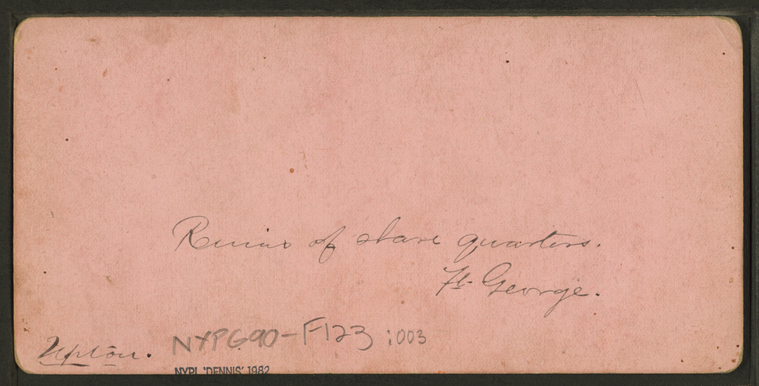 Ruins of slave quarters.
Ft. George.
Upton.
NYPG90-F123 :003
NYPL 'DENNIS' 1982